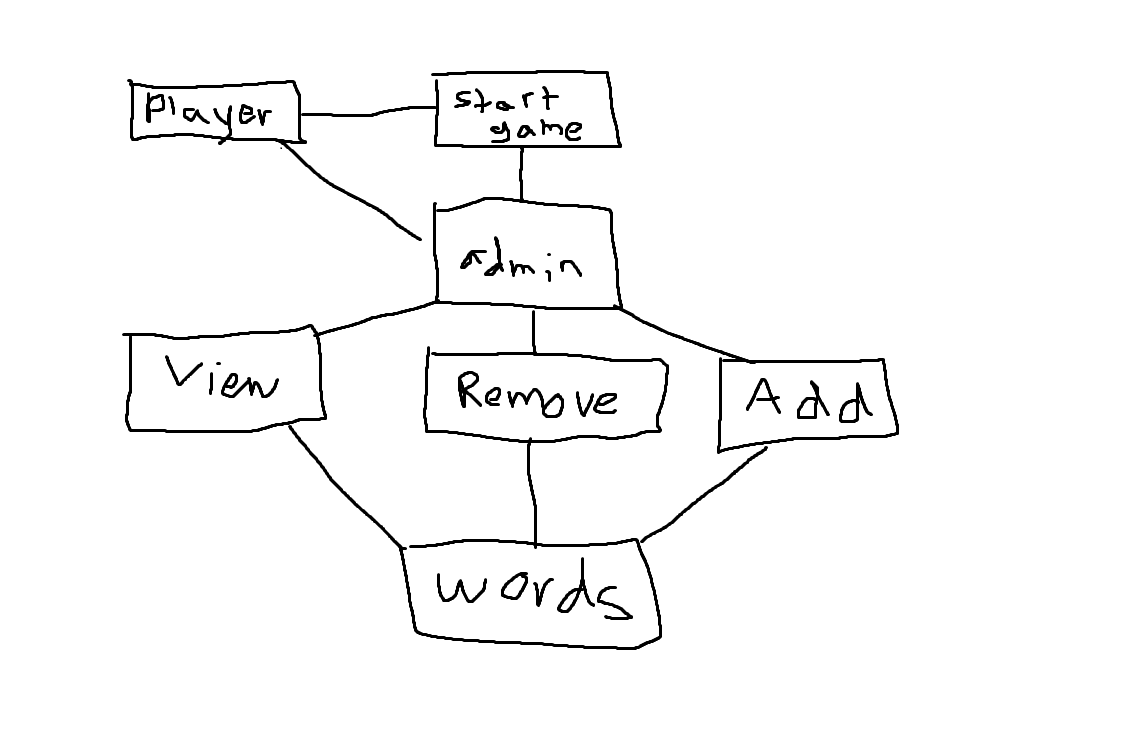 Player
start
game
admin
View
Remove
Add
words